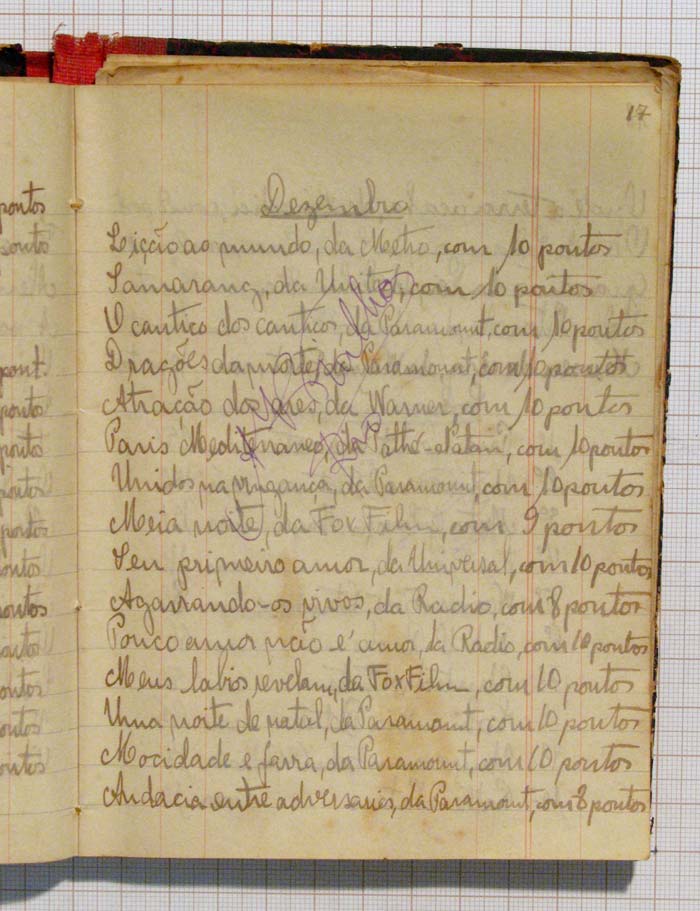 17
Dezembro
Lição ao mundo, da Metro, com 10 pontos
Samarang, da United, com 10 pontos
O cantico dos canticos, da Paramount, com 10 pontos
Dragões da morte, da Paramount, com 10 pontos
Atração dos ares, da Warner, com 10 pontos
Paris Mediterraneo, da Pathé-Natan, com 10 pontos
Unidos na vingança, da Paramount, com 10 pontos
Meia noite, da Fox Film, com 9 pontos
Seu primeiro amor, da Universal, com 10 pontos
Agarrando-os vivos, da Radio, com 8 pontos
Pouco amor não é amor, da Radio, com 10 pontos
Meus labios revelam, da Fox Film, com 10 pontos
Uma noite de natal, da Paramount, com 10 pontos
Mocidade e farra, da Paramount, com 10 pontos
Audacia entre adversarios, da Paramount, com 8 pontos
pontos
ponto
pont.
ponto
pontos
pontos
pontos
pontos
pontos
pontos
pontos
pontos
pontos